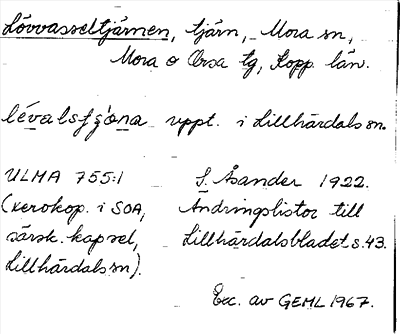 Lövvasseltjärnen, tjärn, Mora sn,
Mora o Orsa tg, Kopp. län.
lévalsţʒòna uppt. i Lillhärdals sn.
ULMA 755:1 S. Åsander 1922.
(xerokop. i SOA, Ändringslistor till
särsk. kapsel, Lillhärdalsbladet s. 43.
Lillhärdals sn).
Exc. av GEML 1967.